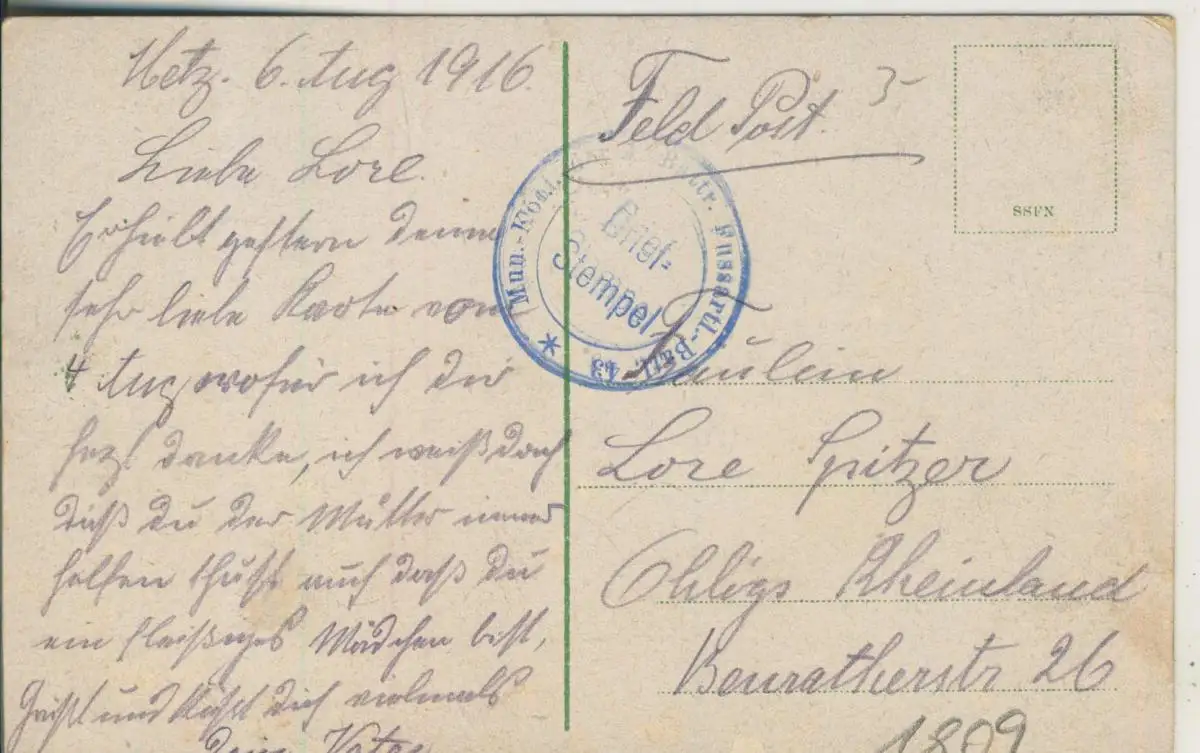 Metz. 6. Aug 1916.
Liebe Lore.
Erhielt gestern deine
sehr liebe Karte vom
4 Aug wofür ich dir
herzl danke, ich weiß doch
daß du der Mutter immer
helfen thust auch daß du
ein fleißiges Mädchen bist,
Grüßt und Küßt dich vielmals
dein Vater
Feld Post. 5
SSFN
Brief-
Stempel
Mun.-Kol. Battr. Fussartl.-Batl. 43
Fräulein
Lore Spitzer
Ohligs Rheinland
Benratherstr 26
1809